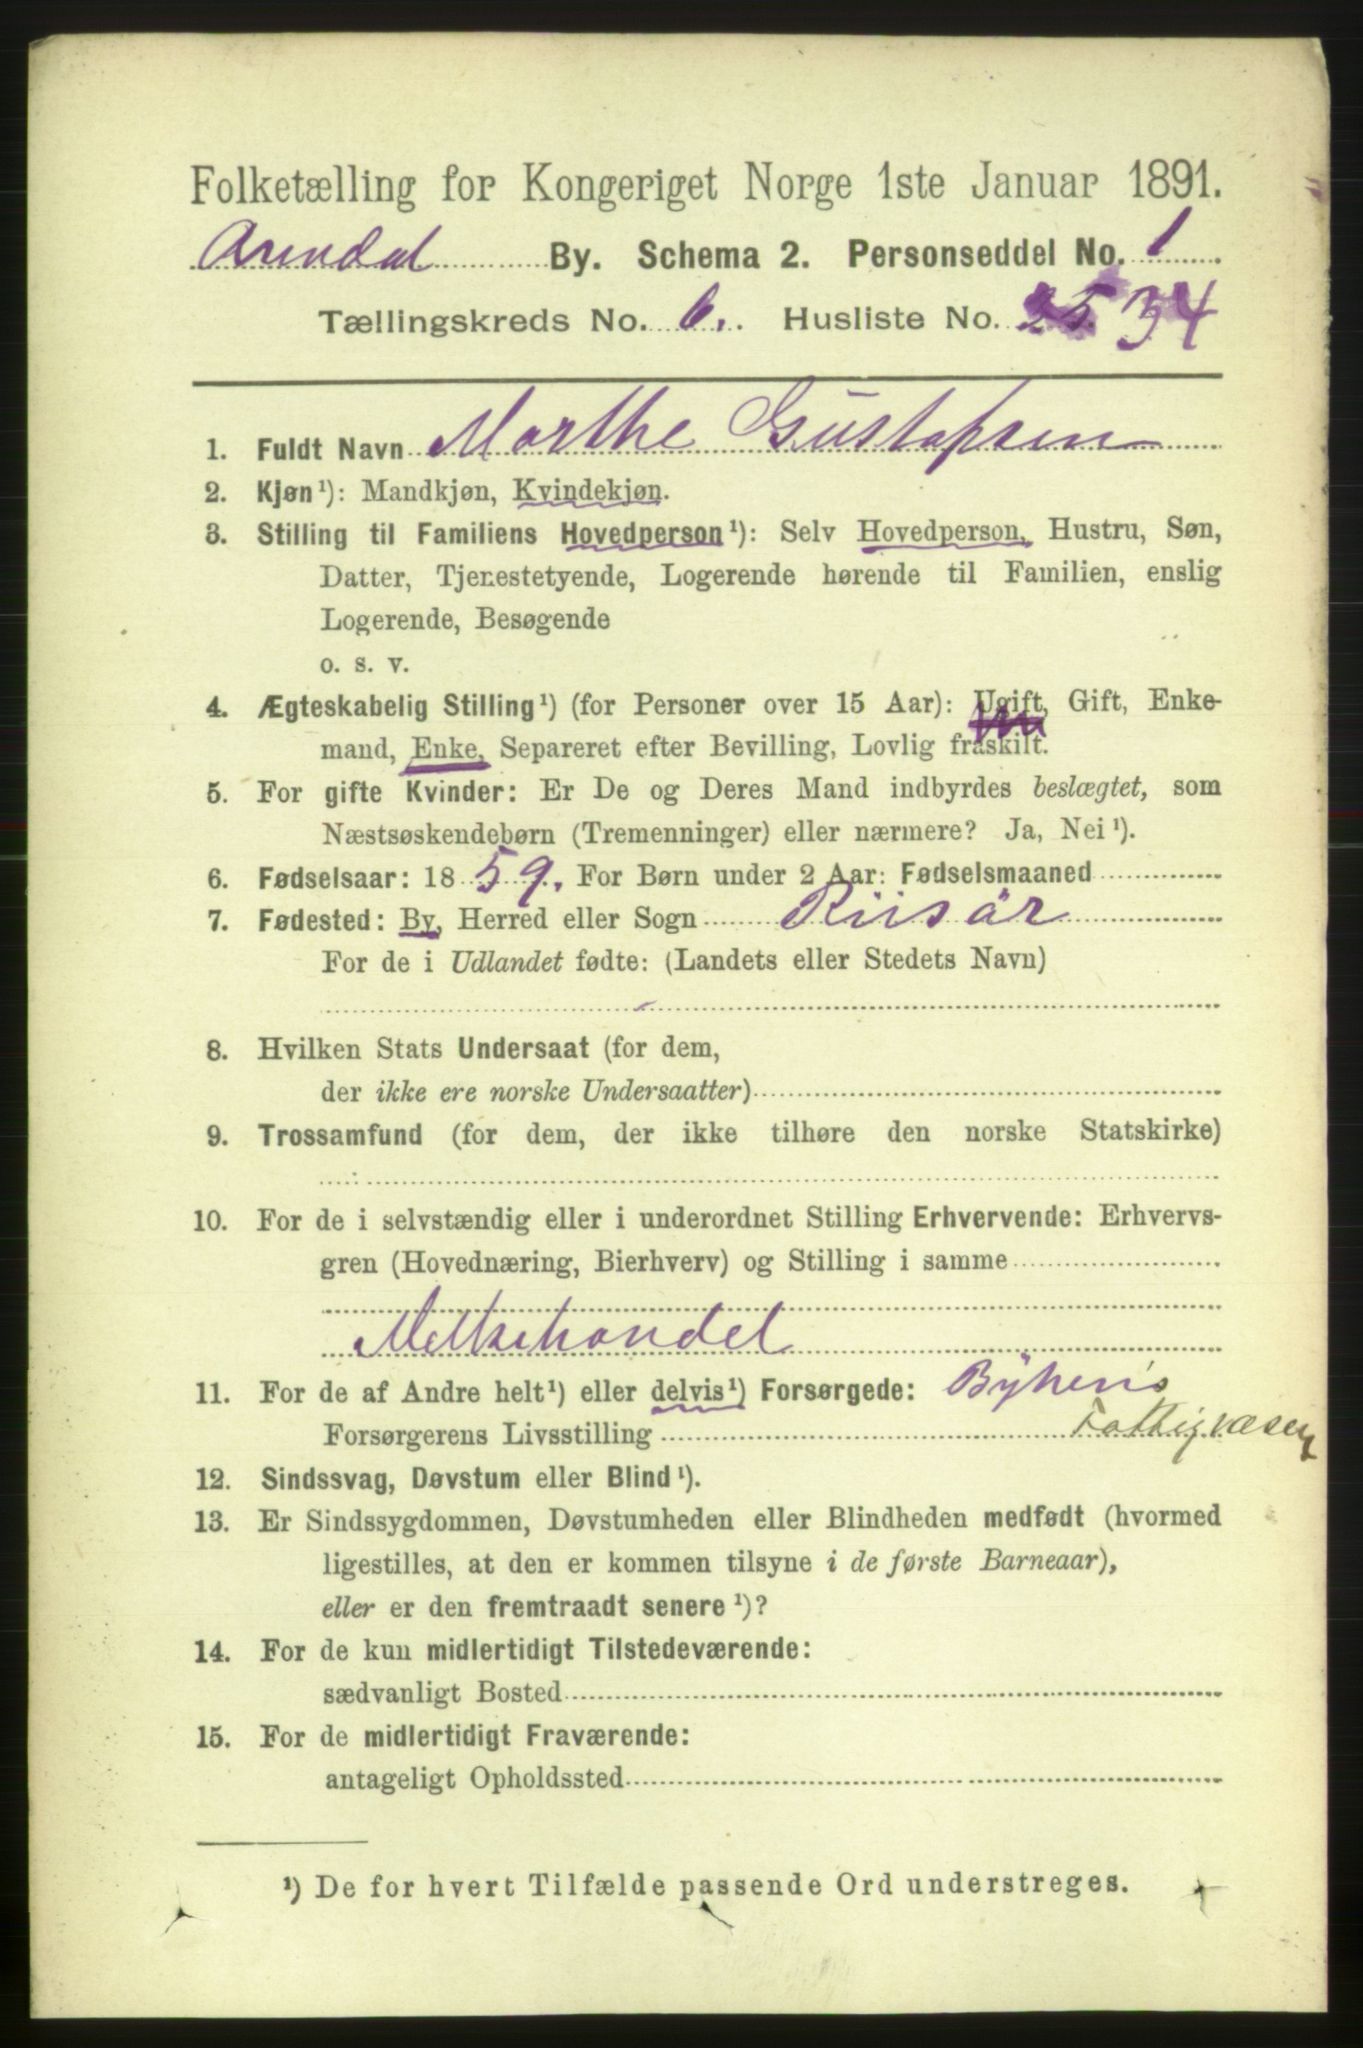 Folketælling for Kongeriget Norge 1ste Januar 1891.
Arendal By. Schema 2. Personseddel No. 1
Tællingskreds No. 6. Husliste No. 25. 34
1. Fuldt Navn Marthe Gustafsen
2. Kjøn¹): Mandkjøn, Kvindekjøn.
3. Stilling til Familiens Hovedperson¹): Selv Hovedperson, Hustru, Søn,
Datter, Tjenestetyende, Logerende hørende til Familien, enslig
Logerende, Besøgende
o. s. v.
4. Ægteskabelig Stilling¹) (for Personer over 15 Aar): Ugift, Gift, Enke-
mand, Enke, Separeret efter Bevilling, Lovlig fraskilt.
5. For gifte Kvinder: Er De og Deres Mand indbyrdes beslægtet, som
Næstsøskendebørn (Tremenninger) eller nærmere? Ja, Nei¹).
6. Fødselsaar: 1859. For Børn under 2 Aar: Fødselsmaaned
7. Fødested: By, Herred eller Sogn Riisør
For de i Udlandet fødte: (Landets eller Stedets Navn)
8. Hvilken Stats Undersaat (for dem,
der ikke ere norske Undersaatter)
9. Trossamfund (for dem, der ikke tilhøre den norske Statskirke)
10. For de i selvstændig eller i underordnet Stilling Erhvervende: Erhvervs-
gren (Hovednæring, Bierhverv) og Stilling i samme
Melkehandel
11. For de af Andre helt¹) eller delvis¹) Forsørgede: Byhens
Forsørgerens Livsstilling Fattigvæsen
12. Sindssvag, Døvstum eller Blind¹).
13. Er Sindssygdommen, Døvstumheden eller Blindheden medfødt (hvormed
ligestilles, at den er kommen tilsyne i de første Barneaar),
eller er den fremtraadt senere¹)?
14. For de kun midlertidigt Tilstedeværende:
sædvanligt Bosted
15. For de midlertidigt Fraværende:
antageligt Opholdssted
¹) De for hvert Tilfælde passende Ord understreges.